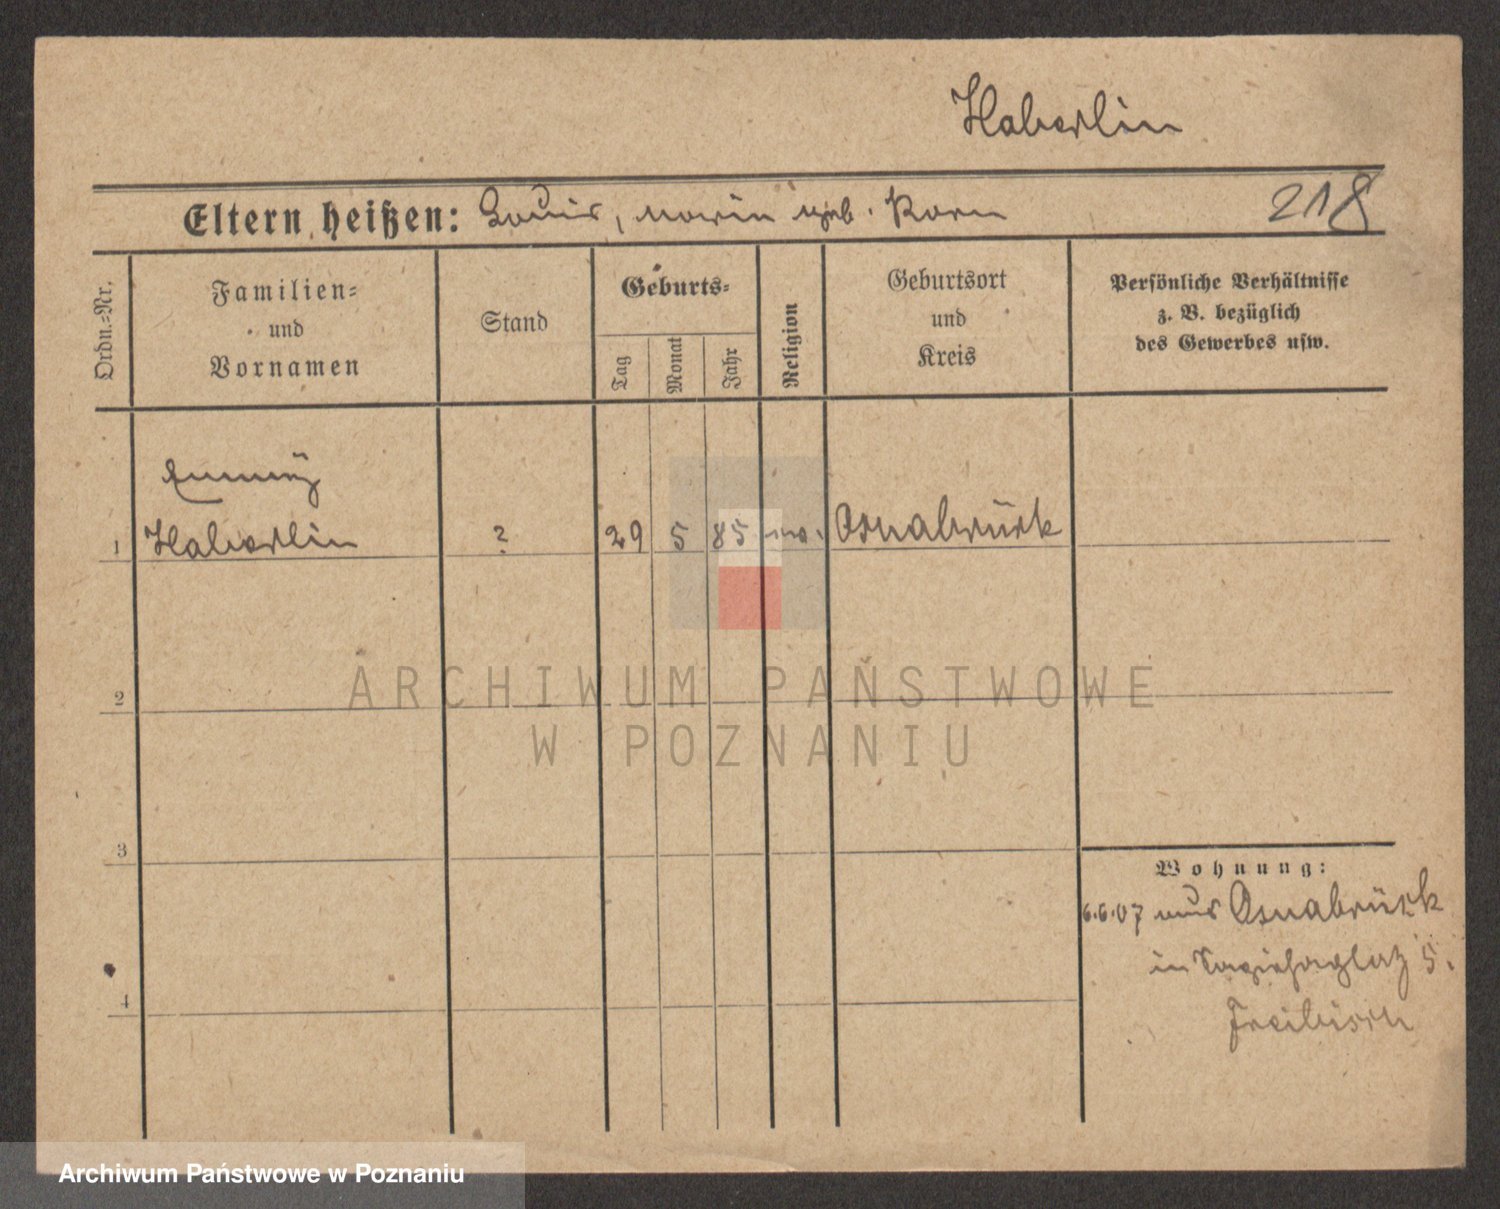 Haberlin
Eltern heißen: Louis, Marie geb. Korn
218
Ordn.-Nr.
Familien-
und
Vornamen
Stand
Geburts-
Tag
Monat
Jahr
Religion
Geburtsort
und
Kreis
Persönliche Verhältnisse
z. B. bezüglich
des Gewerbes usw.
Emmy
1 Haberlin ? 29 5 85 Osnabrück
2
3
4
Wohnung:
6.6.07 aus Osnabrück
in 5.
ARCHIWUM PAŃSTWOWE
W POZNANIU
Archiwum Państwowe w Poznaniu